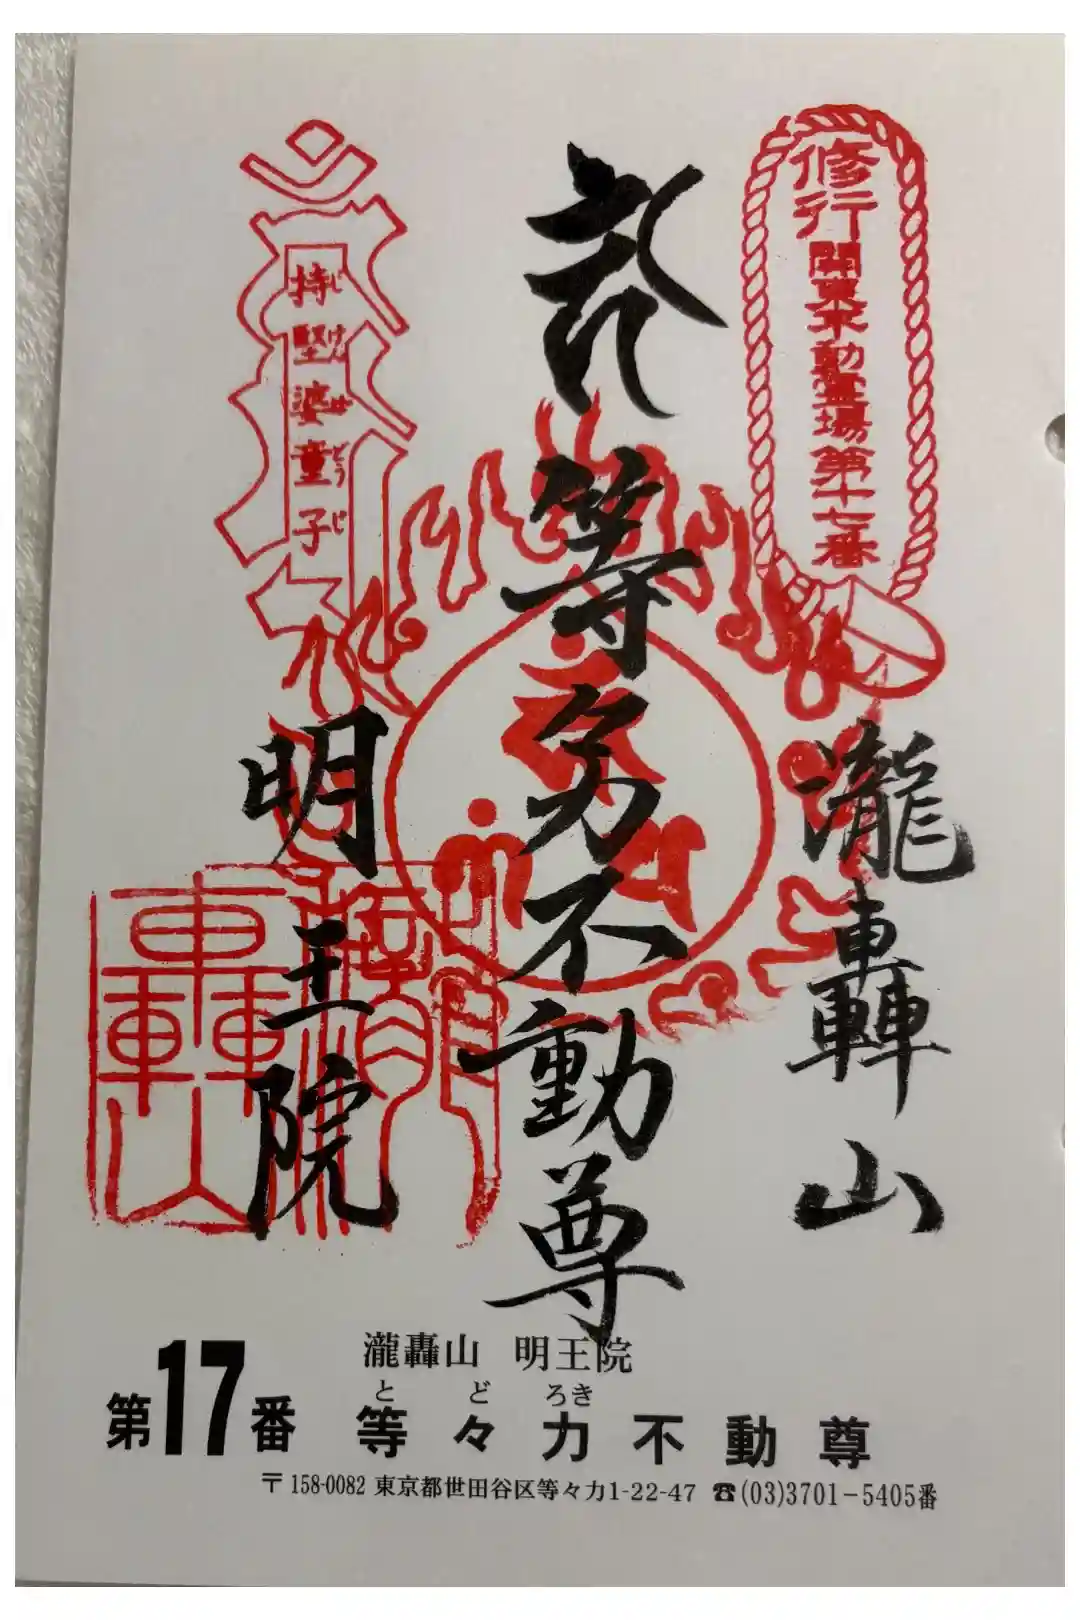 修行
関東不動霊場第十七番
瀧轟山
等々力不動尊
持堅婆童子
じけんばどうじ
明王院
瀧轟山 明王院
とどろき
第17番 等々力不動尊
〒158-0082 東京都世田谷区等々力1-22-47 ☎(03)3701−5405番